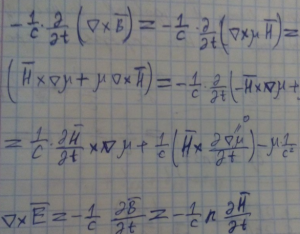 -1/c · ∂/∂t (∇×B̅) = -1/c · ∂/∂t (∇×μH̅) =
(H̅×∇μ + μ∇×H̅) = -1/c · ∂/∂t (-H̅×∇μ +
= 1/c · ∂H̅/∂t × ∇μ + 1/c (H̅× ∂∇μ/∂t) - μ 1/c²
∇×E̅ = -1/c ∂B̅/∂t = -1/c μ ∂H̅/∂t